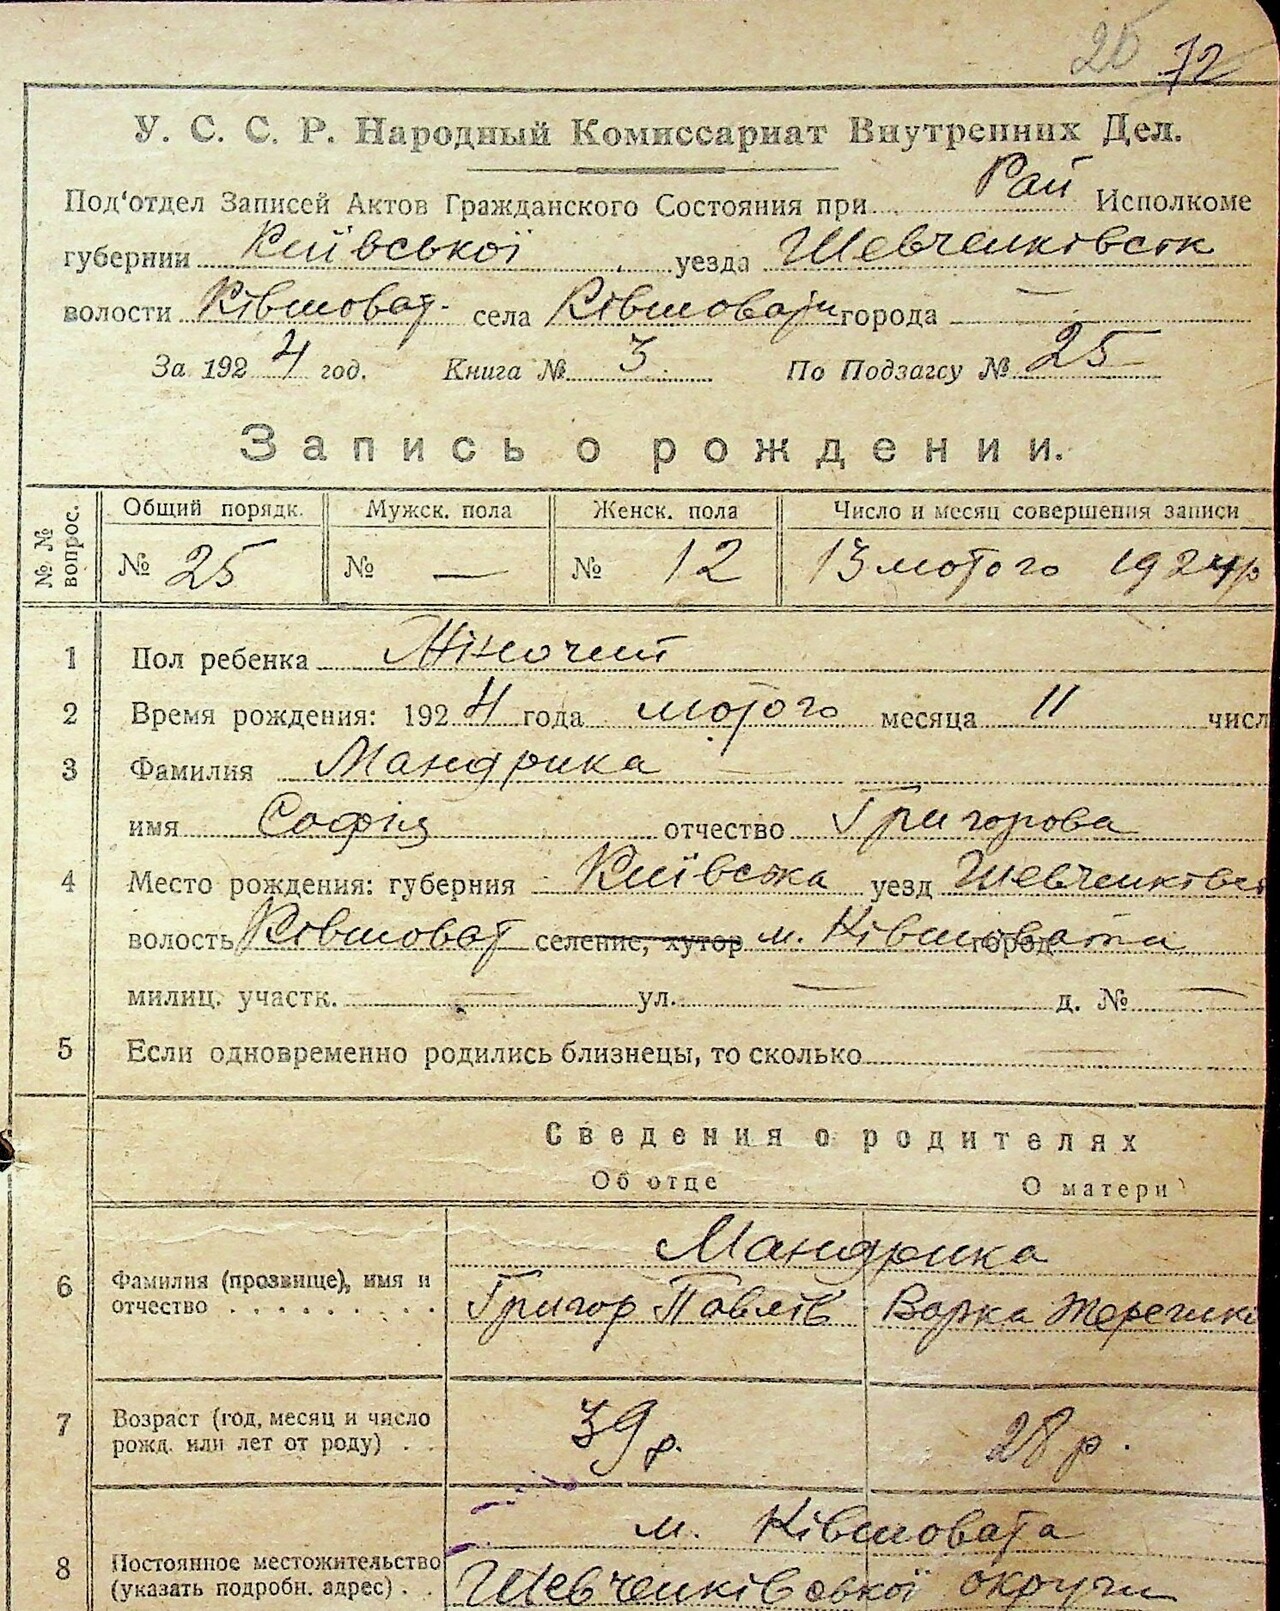 25 72
У. С. С. Р. Народный Комиссариат Внутренних Дел.
Под'отдел Записей Актов Гражданского Состояния при Рай Исполкоме
губернии Київської уезда Шевченківськ
волости Ківшоват. села Ківшовати города —
За 1924 год. Книга № 3 По Подзагсу № 25
Запись о рождении.
№ № вопрос. Общий порядк. Мужск. пола Женск. пола Число и месяц совершения записи
№ 25 № — № 12 13 лютого 1924 р
1 Пол ребенка Жіночий
2 Время рождения: 1924 года лютого месяца 11 числ
3 Фамилия Мандрика
имя Софія отчество Григорова
4 Место рождения: губерния Київська уезд Шевченківсь
волость Ківшоват селение, хутор м. Ківшовата город
милиц. участк. — ул. — д. № —
5 Если одновременно родились близнецы, то сколько
Сведения о родителях
Об отце О матери
Мандрика
6 Фамилия (прозвище), имя и отчество Григор Павлів Варка
7 Возраст (год, месяц и число рожд. или лет от роду) 39 р. 28 р.
м. Ківшовата
8 Постоянное местожительство (указать подробн. адрес) Шевченківської округи